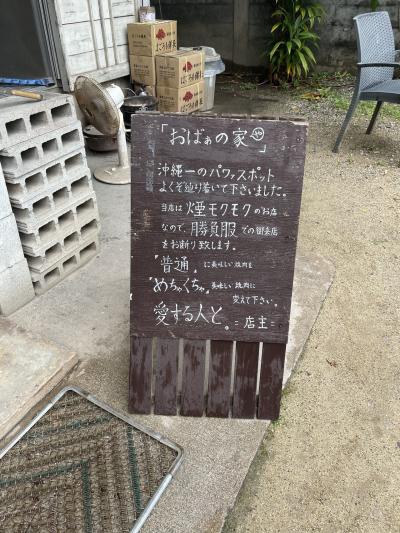 「おばぁの家」
沖縄一のパワースポット
よくぞ辿り着いて下さいました。
当店は煙モクモクのお店
なので、勝負服での御来店
をお断り致します。
"普通"に美味しい焼肉を
"めちゃくちゃ"美味しい焼肉に
変えて下さい。
愛する人と。=店主=